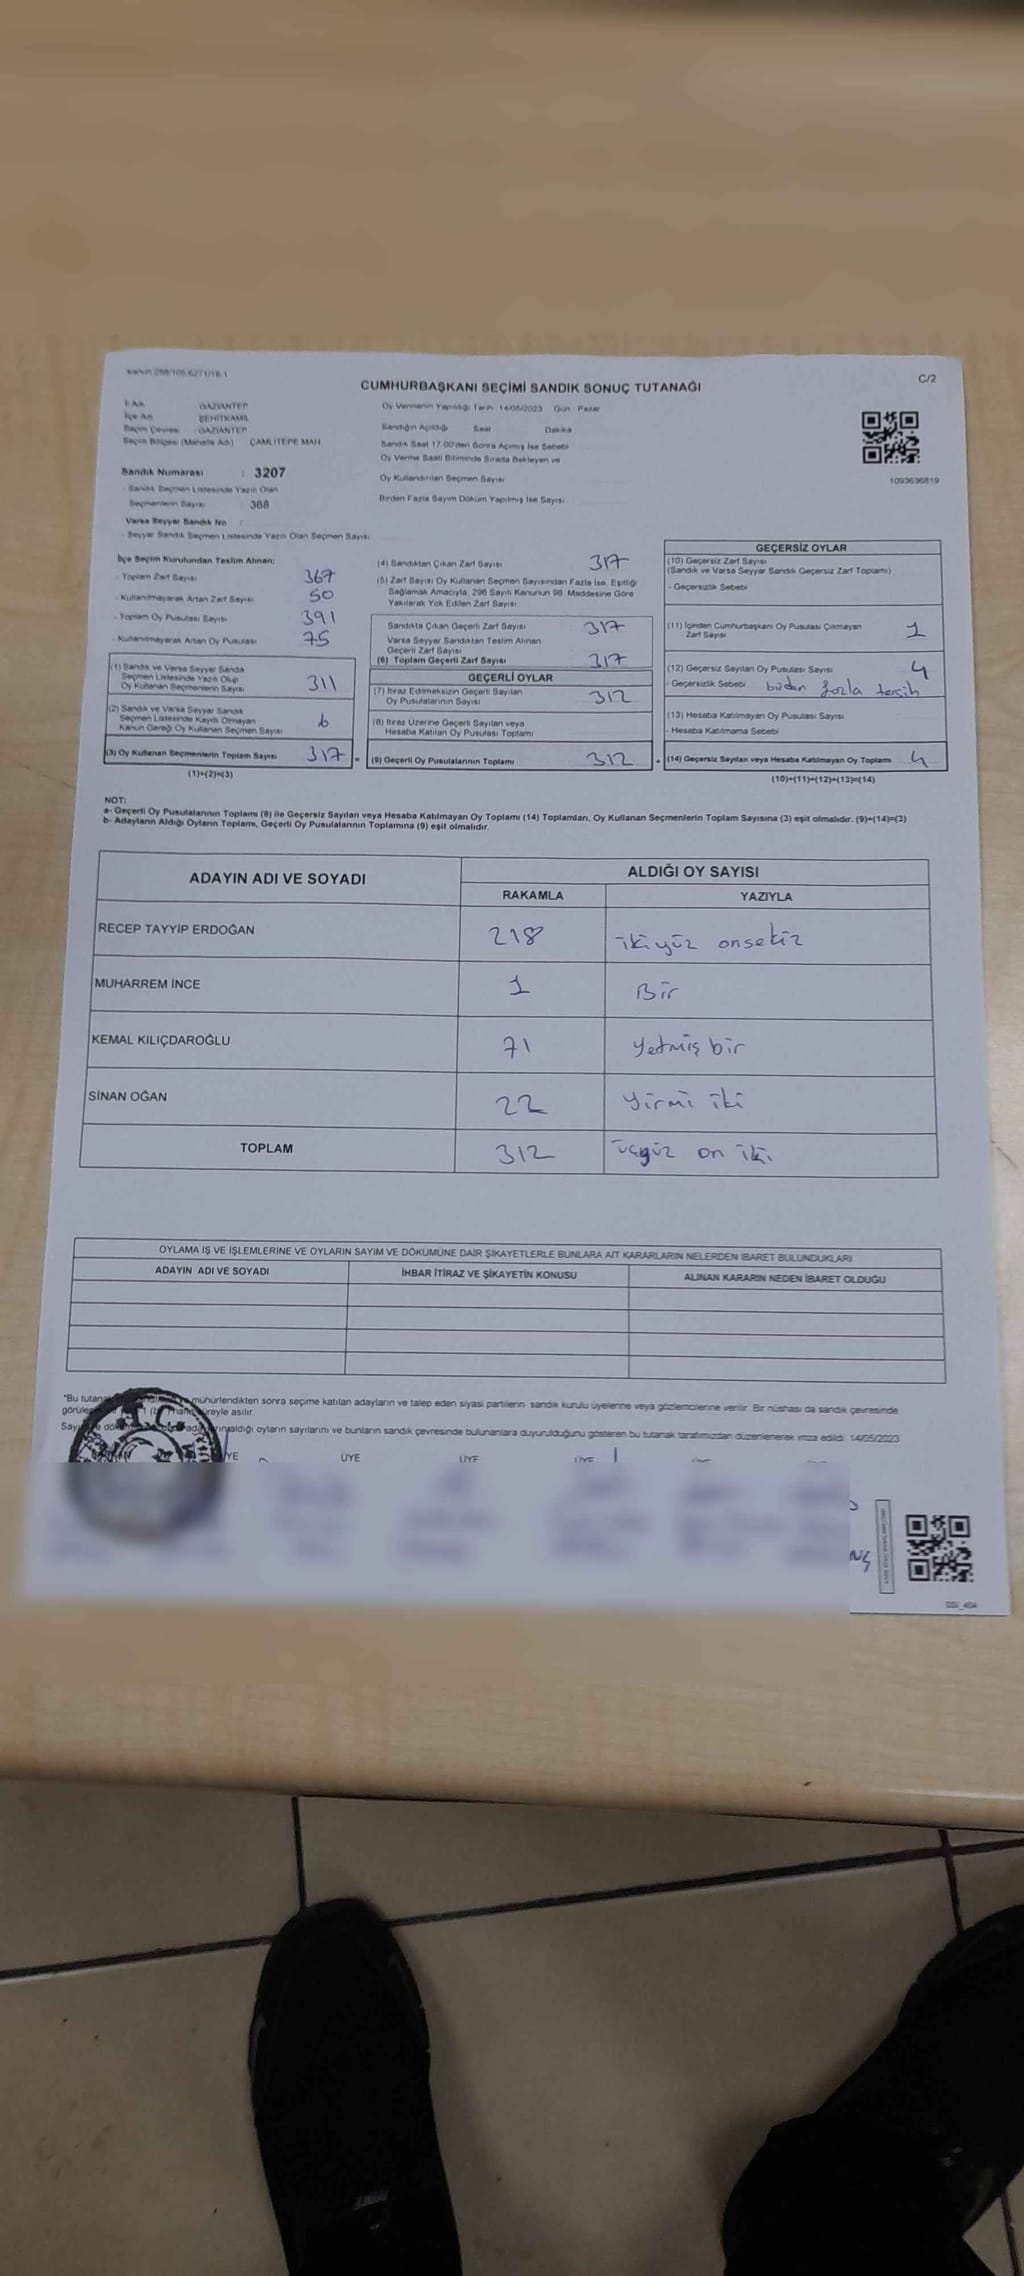 Kanun 298/105,6271/18-1
C/2
CUMHURBAŞKANI SEÇİMİ SANDIK SONUÇ TUTANAĞI
İl Adı : GAZİANTEP
İlçe Adı : ŞEHİTKAMİL
Seçim Çevresi : GAZİANTEP
Seçim Bölgesi (Mahalle Adı) : ÇAMLITEPE MAH
Sandık Numarası : 3207
- Sandık Seçmen Listesinde Yazılı Olan
Seçmenlerin Sayısı : 368
Varsa Seyyar Sandık No :
- Seyyar Sandık Seçmen Listesinde Yazılı Olan Seçmen Sayısı:
Oy Vermenin Yapıldığı Tarih 14/05/2023 Gün : Pazar
Sandığın Açıldığı Saat Dakika
Sandık Saat 17.00'den Sonra Açılmış İse Sebebi
Oy Verme Saati Bitiminde Sırada Bekleyen ve
Oy Kullandırılan Seçmen Sayısı
Birden Fazla Sayım Döküm Yapılmış İse Sayısı
1093636819
İlçe Seçim Kurulundan Teslim Alınan;
- Toplam Zarf Sayısı 367
- Kullanılmayarak Artan Zarf Sayısı 50
- Toplam Oy Pusulası Sayısı 391
- Kullanılmayarak Artan Oy Pusulası 75
(1) Sandık ve Varsa Seyyar Sandık
Seçmen Listesinde Yazılı Olup
Oy Kullanan Seçmenlerin Sayısı 311
(2) Sandık ve Varsa Seyyar Sandık
Seçmen Listesinde Kayıtlı Olmayan
Kanun Gereği Oy Kullanan Seçmen Sayısı 6
(3) Oy Kullanan Seçmenlerin Toplam Sayısı 317
(1)+(2)=(3)
(4) Sandıktan Çıkan Zarf Sayısı 317
(5) Zarf Sayısı Oy Kullanan Seçmen Sayısından Fazla İse, Eşitliği
Sağlamak Amacıyla, 298 Sayılı Kanunun 98. Maddesine Göre
Yakılarak Yok Edilen Zarf Sayısı
Sandıkta Çıkan Geçerli Zarf Sayısı 317
Varsa Seyyar Sandıktan Teslim Alınan
Geçerli Zarf Sayısı
(6) Toplam Geçerli Zarf Sayısı 317
GEÇERLİ OYLAR
(7) İtiraz Edilmeksizin Geçerli Sayılan
Oy Pusulalarının Sayısı 312
(8) İtiraz Üzerine Geçerli Sayılan veya
Hesaba Katılan Oy Pusulası Toplamı
(9) Geçerli Oy Pusulalarının Toplamı 312
GEÇERSİZ OYLAR
(10) Geçersiz Zarf Sayısı
(Sandık ve Varsa Seyyar Sandık Geçersiz Zarf Toplamı)
- Geçersizlik Sebebi
(11) İçinden Cumhurbaşkanı Oy Pusulası Çıkmayan
Zarf Sayısı 1
(12) Geçersiz Sayılan Oy Pusulası Sayısı 4
- Geçersizlik Sebebi birden fazla tercih
(13) Hesaba Katılmayan Oy Pusulası Sayısı
- Hesaba Katılmama Sebebi
(14) Geçersiz Sayılan veya Hesaba Katılmayan Oy Toplamı 4
(10)+(11)+(12)+(13)=(14)
NOT:
a- Geçerli Oy Pusulalarının Toplamı (9) ile Geçersiz Sayılan veya Hesaba Katılmayan Oy Toplamı (14) Toplamları, Oy Kullanan Seçmenlerin Toplam Sayısına (3) eşit olmalıdır. (9)+(14)=(3)
b- Adayların Aldığı Oyların Toplamı, Geçerli Oy Pusulalarının Toplamına (9) eşit olmalıdır.
ADAYIN ADI VE SOYADI ALDIĞI OY SAYISI
RAKAMLA YAZIYLA
RECEP TAYYİP ERDOĞAN 218 ikiyüz onsekiz
MUHARREM İNCE 1 Bir
KEMAL KILIÇDAROĞLU 71 yetmiş bir
SİNAN OĞAN 22 yirmi iki
TOPLAM 312 üçyüz on iki
OYLAMA İŞ VE İŞLEMLERİNE VE OYLARIN SAYIM VE DÖKÜMÜNE DAİR ŞİKAYETLERLE BUNLARA AİT KARARLARIN NELERDEN İBARET BULUNDUKLARI
ADAYIN ADI VE SOYADI İHBAR İTİRAZ VE ŞİKAYETİN KONUSU ALINAN KARARIN NEDEN İBARET OLDUĞU
*Bu tutanak mühürlendikten sonra seçime katılan adayların ve talep eden siyasi partilerin sandık kurulu üyelerine veya gözlemcilerine verilir. Bir nüshası da sandık çevresinde
süreyle asılır.
aldığı oyların sayılarını ve bunların sandık çevresinde bulunanlara duyurulduğunu gösteren bu tutanak tarafımızdan düzenlenerek imza edildi. 14/05/2023
T.C.
ÜYE ÜYE ÜYE